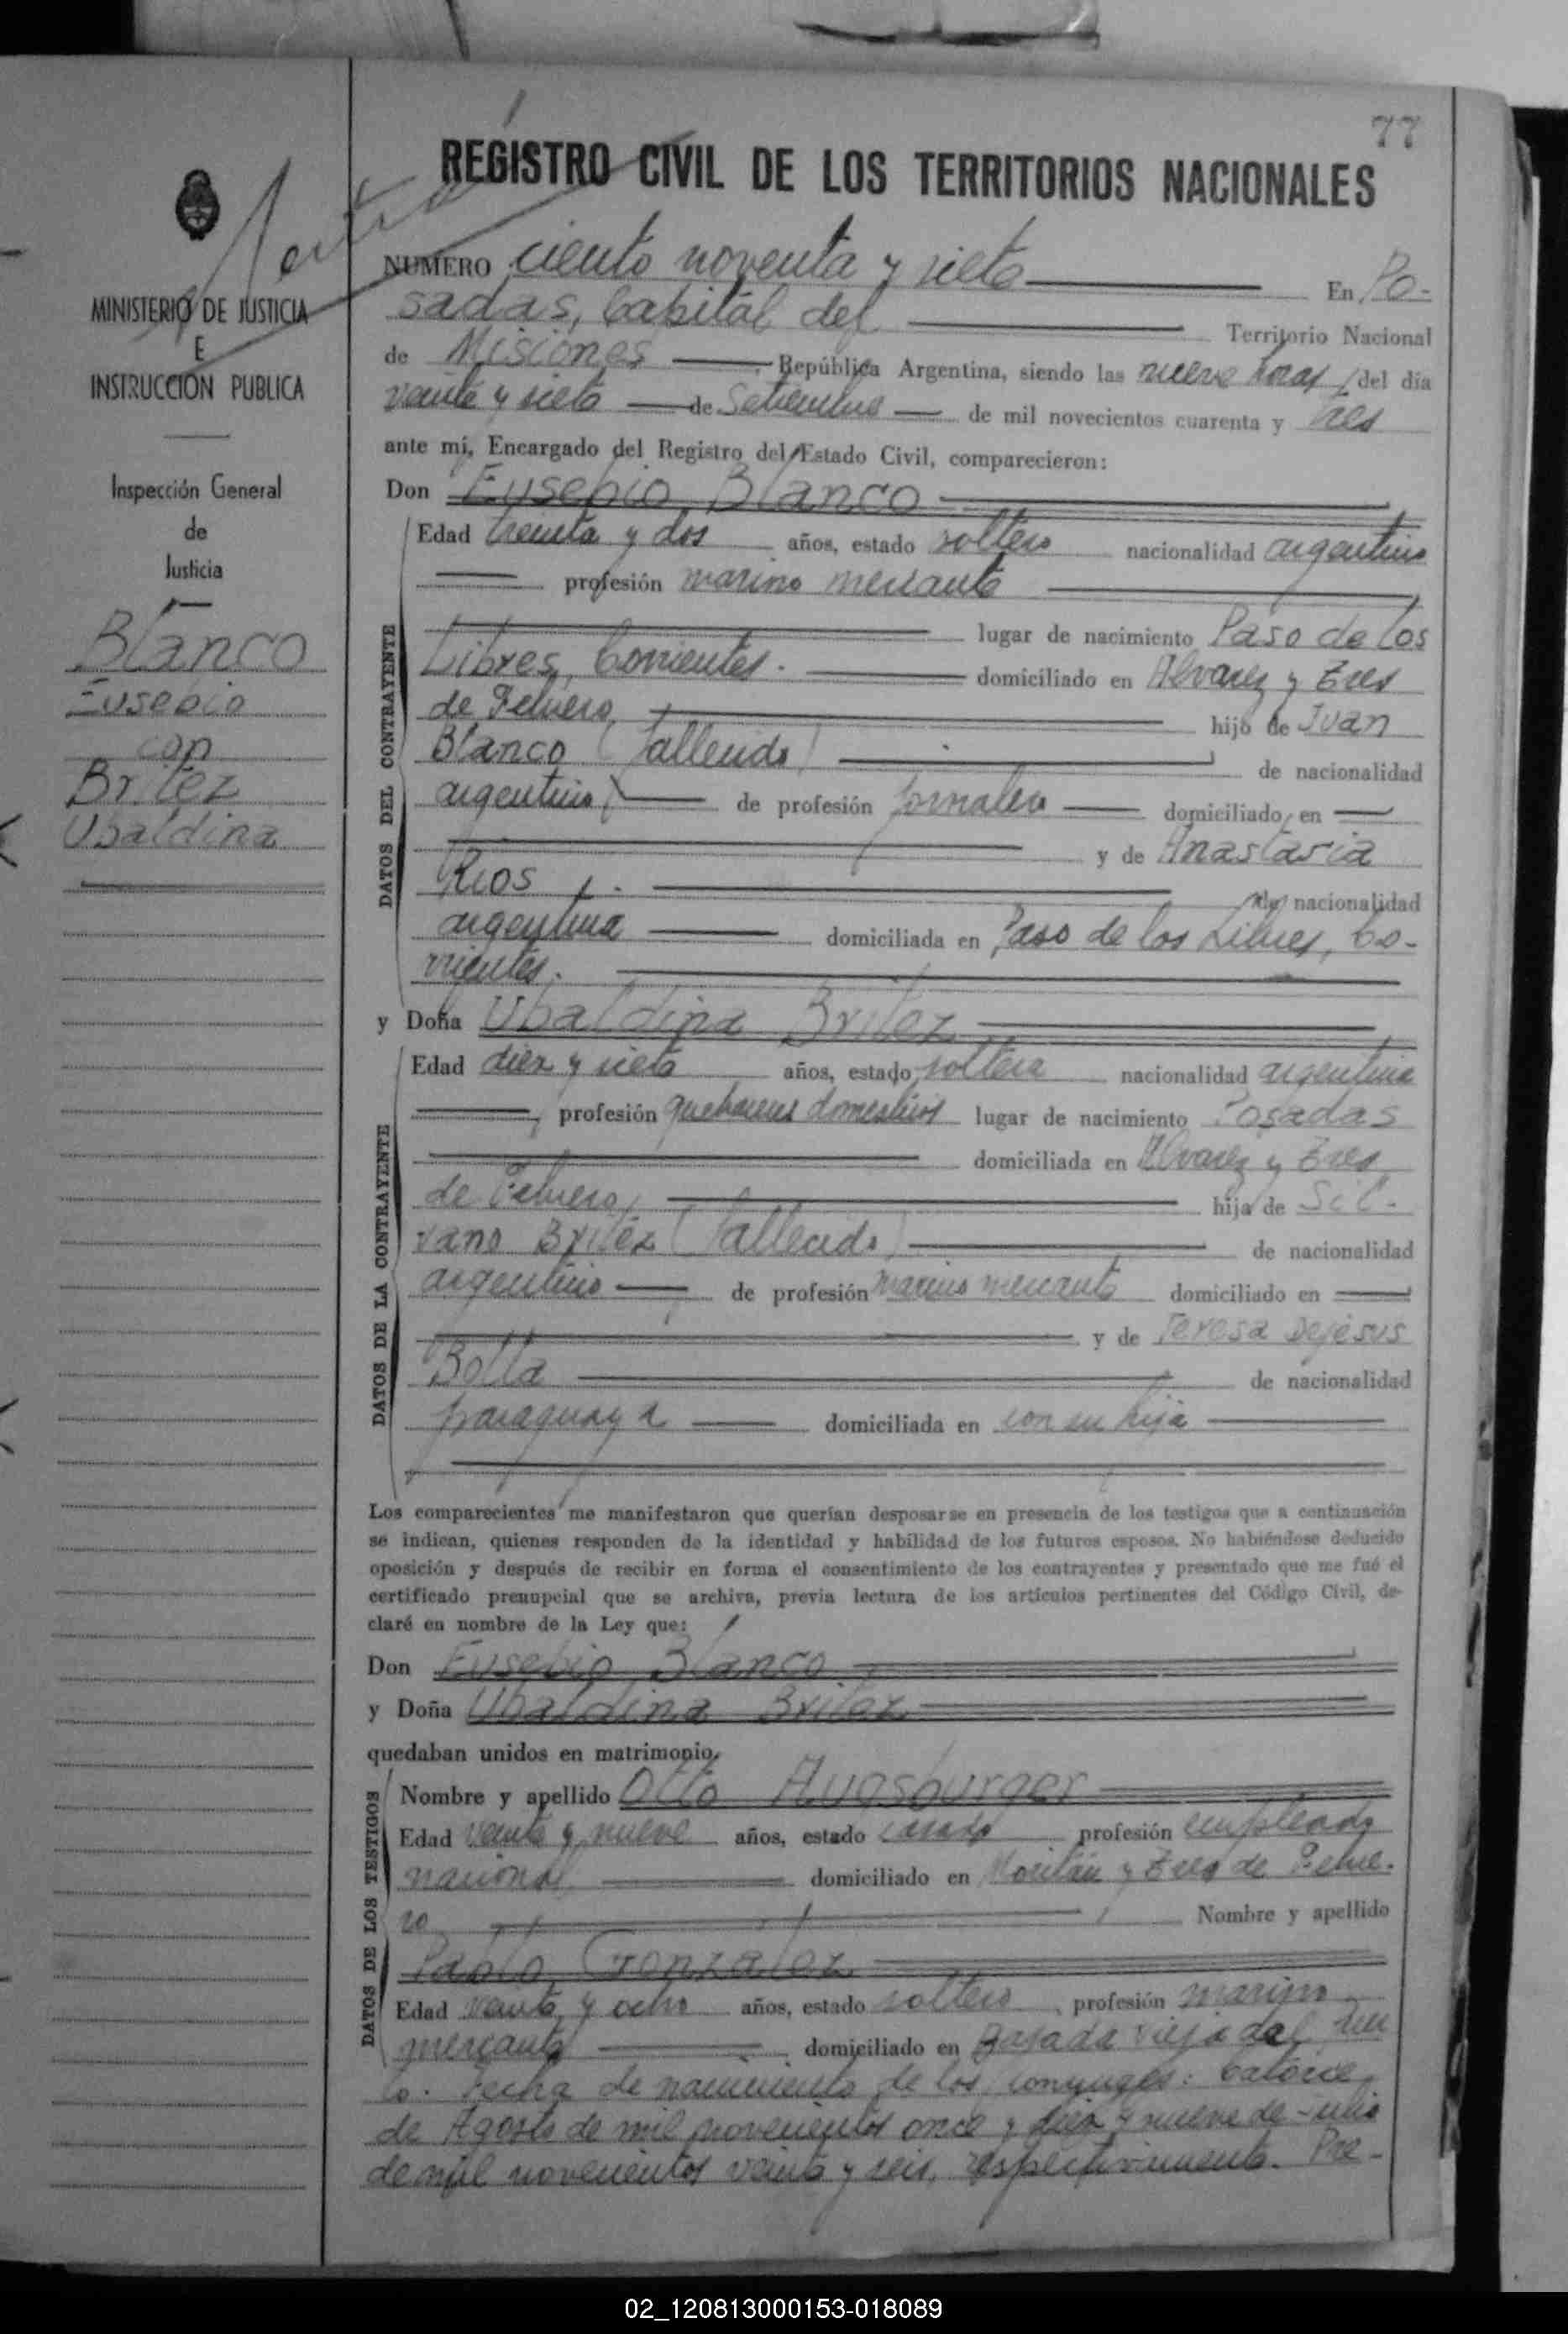 77
REGISTRO CIVIL DE LOS TERRITORIOS NACIONALES
MINISTERIO DE JUSTICIA
E
INSTRUCCIÓN PUBLICA
Inspección General
de
Justicia
Blanco
Eusebio
con
Britez
Ubaldina
NUMERO ciento noventa y siete En Po-
sadas, Capital del Territorio Nacional
de Misiones República Argentina, siendo las nueve horas del día
veinte y siete de Setiembre de mil novecientos cuarenta y tres
ante mí, Encargado del Registro del Estado Civil, comparecieron:
Don Eusebio Blanco
DATOS DEL CONTRAYENTE
Edad treinta y dos años, estado soltero nacionalidad argentino
profesión marino mercante
lugar de nacimiento Paso de los
Libres, Corrientes. domiciliado en Alvarez y tres
de Febrero, hijo de Juan
Blanco (fallecido) de nacionalidad
argentino, de profesión jornalero domiciliado en
y de Anastasia
Rios, de nacionalidad
argentina domiciliada en Paso de los Libres, Co-
rrientes.
y Doña Ubaldina Britez
DATOS DE LA CONTRAYENTE
Edad diez y siete años, estado soltera nacionalidad argentina
profesión quehaceres domésticos lugar de nacimiento Posadas
domiciliada en Alvarez y tres
de Febrero, hija de Sil-
vano Britez (fallecido) de nacionalidad
argentino de profesión marino mercante domiciliado en
y de Teresa Dejesus
Bolla de nacionalidad
paraguaya domiciliada en con su hija
Los comparecientes me manifestaron que querían desposarse en presencia de los testigos que a continuación
se indican, quienes responden de la identidad y habilidad de los futuros esposos. No habiéndose deducido
oposición y después de recibir en forma el consentimiento de los contrayentes y presentado que me fué el
certificado prenupcial que se archiva, previa lectura de los artículos pertinentes del Código Civil, de-
claré en nombre de la Ley que:
Don Eusebio Blanco
y Doña Ubaldina Britez
quedaban unidos en matrimonio.
DATOS DE LOS TESTIGOS
Nombre y apellido Otto Augsburger
Edad veinte y nueve años, estado casado profesión empleado
nacional domiciliado en y tres de Febre-
ro Nombre y apellido
Pablo Gonzalez
Edad veinte y ocho años, estado soltero, profesión marino
mercante domiciliado en Bajada vieja del
to. Fecha de nacimiento de los conyuges: catorce
de Agosto de mil novecientos once y diez y nueve de Julio
de mil novecientos veinte y seis, respectivamente. Pre-
02_120813000153-018089